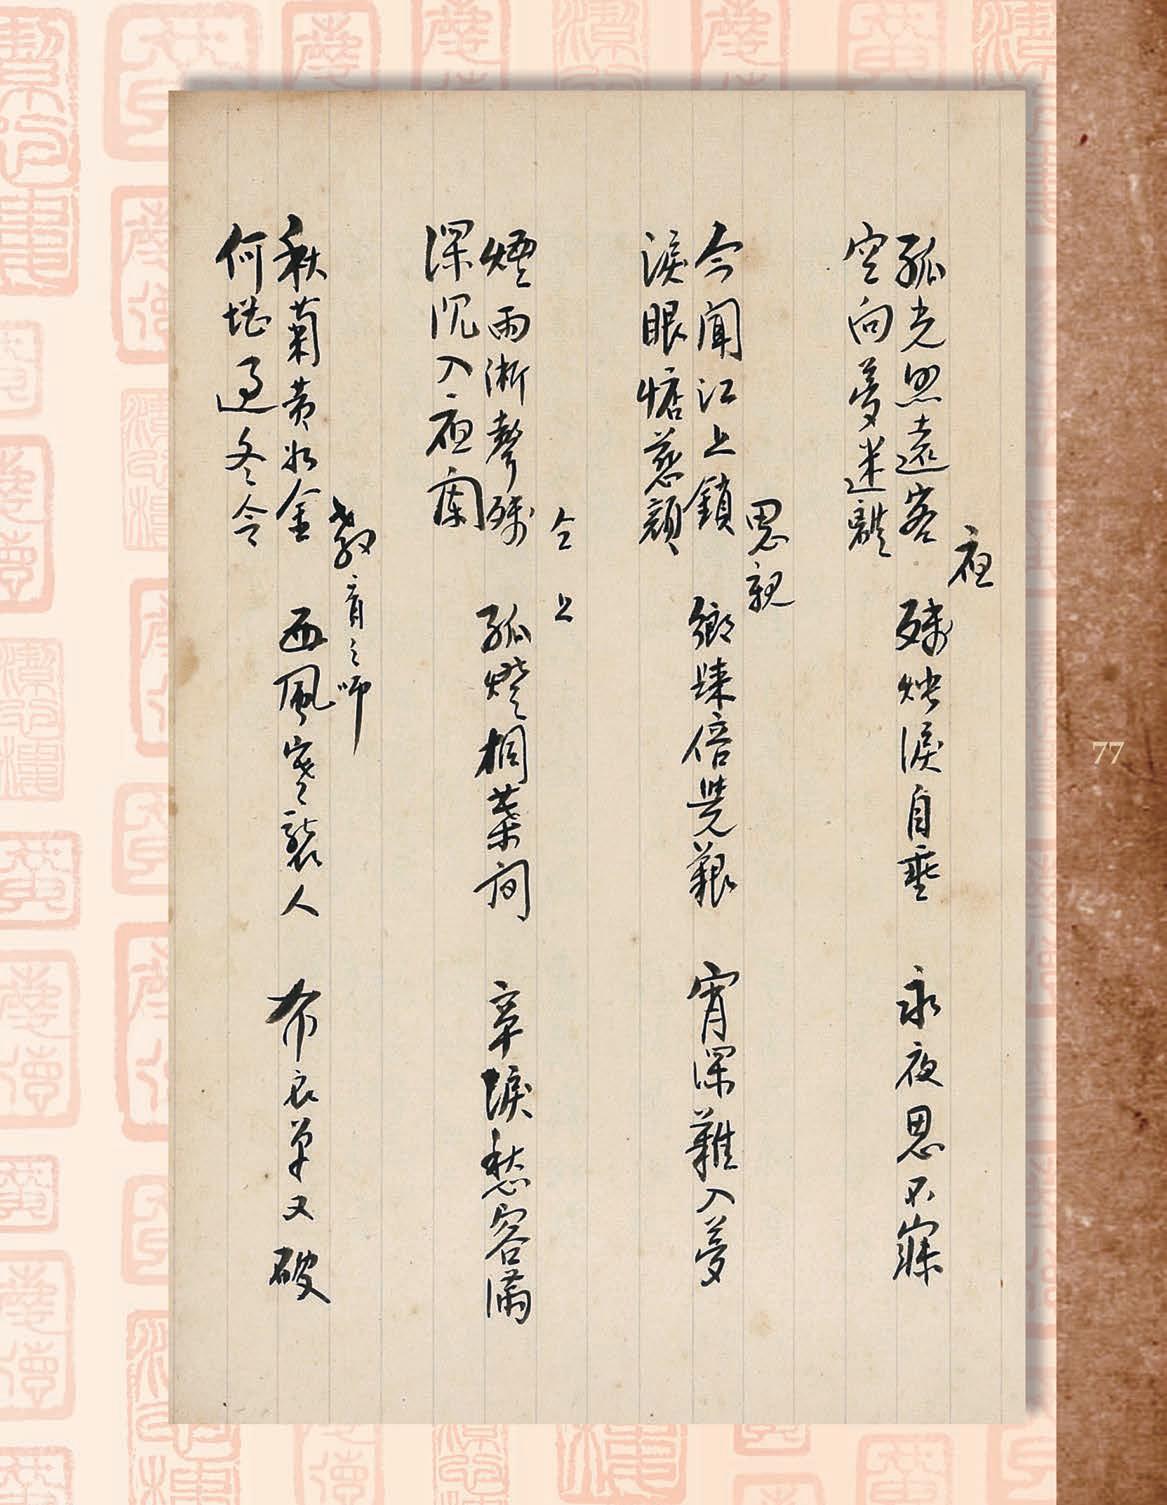 夜
孤光照遠客 殘燭淚自垂 永夜思不寐
空向夢迷離
思親
今聞江上鎖 鄉牒倍覺艱 宵深難入夢
淚眼惦慈顏
仝上
煙雨漸聲殘 孤燈相葉詞 辛酸愁容滿
深沉入夜闌
教育之師
秋菊黃如金 西風寒襲人 布衣單又破
何堪過冬令
77